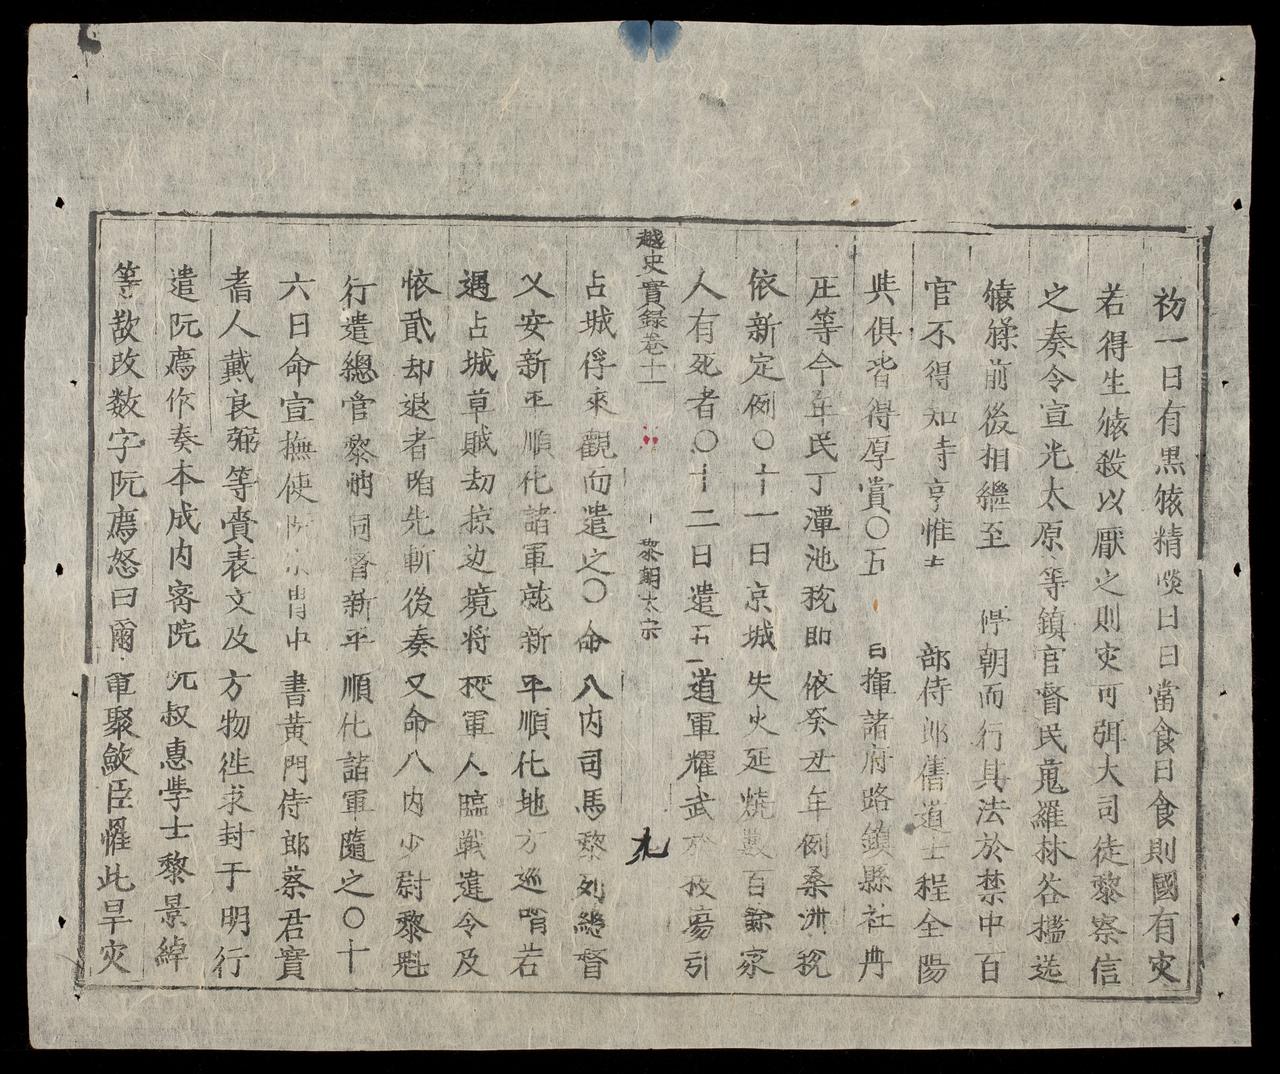 初一日有黒猿精啖日曰當食日食則國有灾
若得生猿殺以厭之則灾可弭大司徒黎察信
之奏令宣光太原等鎮官督民蒐羅林谷檻送
猿猱前後相繼至 停朝而行其法於禁中百
官不得知時亨惟 部侍郎舊道士程全陽
与俱皆得厚賞〇五 日揮諸府路鎮縣社册
庄等今年民丁潭池稅即依癸丑年例桑洲稅
依新定例〇十一日京城失火延燒數百餘家
人有死者〇十二日遣五道軍耀武於教塲引
越史實録卷十一 黎朝太宗 九
占城俘來觀而遣之〇命八内司馬黎列總督
乂安新平順化諸軍就新平順化地方巡哨若
遇占城草賊劫掠边境將校軍人臨戦違令及
恢貮却退者皆先斬後奏又命八内少尉黎魁
行遣總管黎 同督新平順化諸軍隨之〇十
六日命宣撫使阮 胄中書黄門侍郎蔡君寳
耆人戴良弼等賫表文及方物徃求封于明行
遣阮廌作奏本成内密院阮叔惠學士黎景綽
等欲改数字阮廌怒曰爾軍聚斂臣催此旱灾